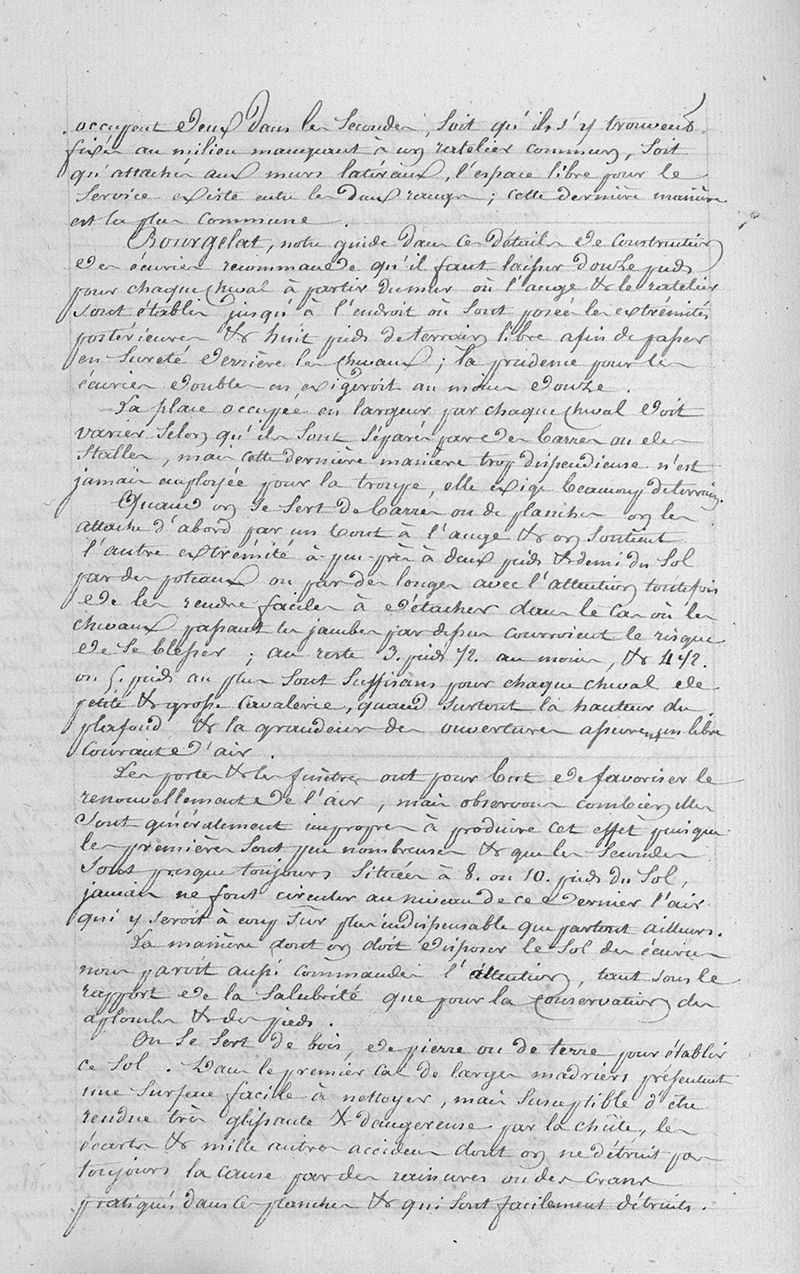 occupent deux dans les secondes, soit qu'ils s'y trouvent
fixés au milieu mangeant à un ratelier commun, soit
qu'attachés aux murs latéraux, l'espace libre pour le
service existe entre les deux rangs ; cette dernière manière
est la plus commune.
Bourgelat, notre guide dans ces détails de construction
des écuries recommande qu'il faut laisser douze pieds
pour chaque cheval à partir du mur où l'auge & le ratelier
sont établis jusqu'à l'endroit où sont posées les extrémités
postérieures & huit pieds de terrain libre afin de passer
en sureté derrière les chevaux ; la prudence pour les
écuries doubles en exigeroit au moins douze.
La place occupée en largeur par chaque cheval doit
varier selon qu'ils sont séparés par des barres ou des
stalles, mais cette dernière manière trop dispendieuse n'est
jamais employée pour la troupe, elle exige beaucoup de terrain.
Quand on se sert de barres ou de planches on les
attache d'abord par un bout à l'auge & on soutient
l'autre extrémité à-peu-près à deux pieds & demi du sol
par des poteaux ou par des longes avec l'attention toutefois
de les rendre faciles à détacher dans le cas où les
chevaux passant les jambes par dessus courroient le risque
de se blesser ; au reste 3. pieds 1/2. au moins, & 4 1/2.
ou 5. pieds au plus sont suffisans pour chaque cheval de
petite & grosse cavalerie, quand surtout la hauteur du
plafond & la grandeur des ouvertures assurent un libre
courant d'air.
Les portes & les fenêtres ont pour but de favoriser le
renouvellement de l'air, mais observons combien elles
sont généralement impropres à produire cet effet puisque
les premières sont peu nombreuses & que les secondes
sont presque toujours situées à 8. ou 10. pieds du sol,
jamais ne font circuler au niveau de ce dernier l'air
qui y seroit à coup sûr plus indispensable que partout ailleurs.
La manière dont on doit disposer le sol des écuries
nous paroit aussi commander l'attention, tant sous le
rapport de la salubrité que pour la conservation des
aplombs & des pieds.
On se sert de bois, de pierre ou de terre pour établir
ce sol. Dans le premier cas de larges madriers présentent
une surface facile à nettoyer, mais susceptible d'être
rendue très glissante & dangereuse par la chûte, les
écarts & mille autres accidens dont on ne détruit pas
toujours la cause par des rainures ou des crans
pratiqués dans ces planches & qui sont facilement détruits.